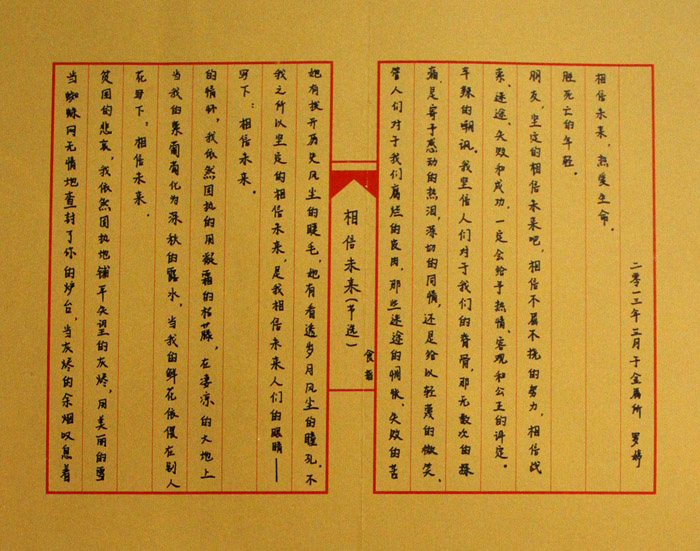 相信未来(节选)
食指
当蜘蛛网无情地查封了你的炉台,当灰烬的余烟叹息着
贫困的悲哀,我依然固执地铺平失望的灰烬,用美丽的雪
花写下:相信未来。
当我的紫葡萄化为深秋的露水,当我的鲜花依偎在别人
的情怀,我依然固执的用凝霜的枯藤,在凄凉的大地上
写下:相信未来。
我之所以坚定的相信未来,是我相信未来人们的眼睛——
她有拨开历史风尘的睫毛,她有看透岁月风尘的瞳孔。不
管人们对于我们腐烂的皮肉,那些迷途的惆怅、失败的苦
痛,是寄予感动的热泪,深切的同情,还是给以轻蔑的微笑、
辛辣的嘲讽。我坚信人们对于我们的脊骨,那无数次的探
索、迷途、失败和成功,一定会给予热情、客观和公正的评定。
朋友,坚定的相信未来吧,相信不屈不挠的努力,相信战
胜死亡的年轻。
相信未来,热爱生命。
二零一三年三月于金属所 罗婷